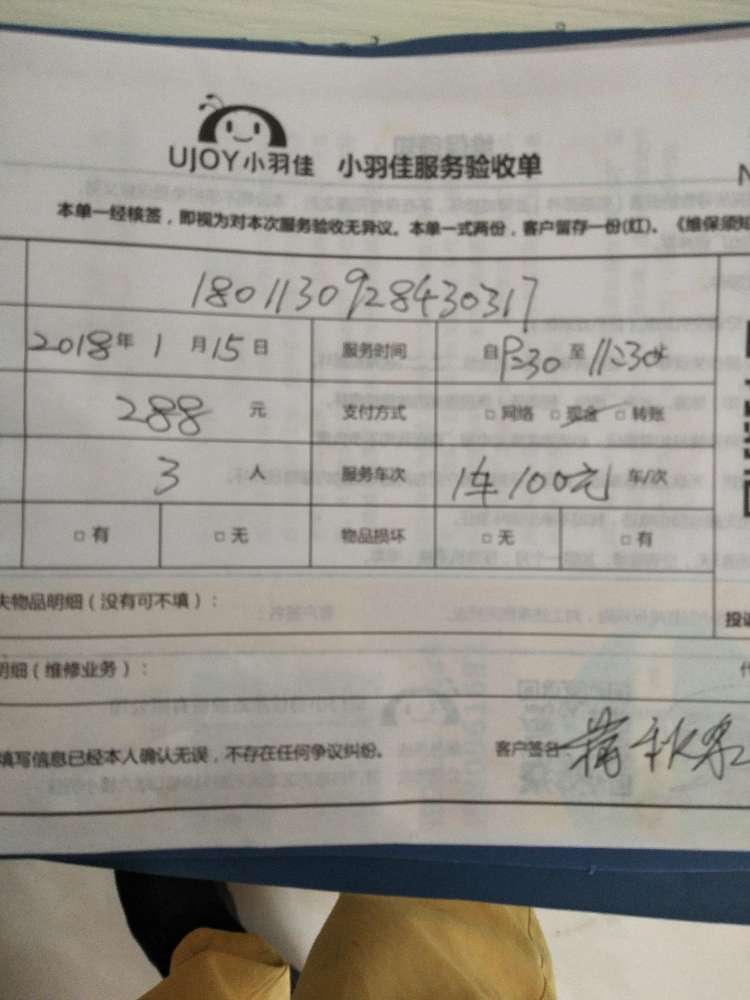 UJOY小羽佳 小羽佳服务验收单
本单一经核签，即视为对本次服务验收无异议。本单一式两份，客户留存一份(红)。《维保须知
1801130928430317
2018年 1 月 15 日 服务时间 自 至 11:30
288 元 支付方式 □ 网络 □ 现金 □ 转账
3 人 服务车次 1车100元 车/次
□ 有 □ 无 物品损坏 □ 无 □ 有
失物品明细（没有可不填）：
投诉
明细（维修业务）：
填写信息已经本人确认无误，不存在任何争议纠纷。 客户签名：